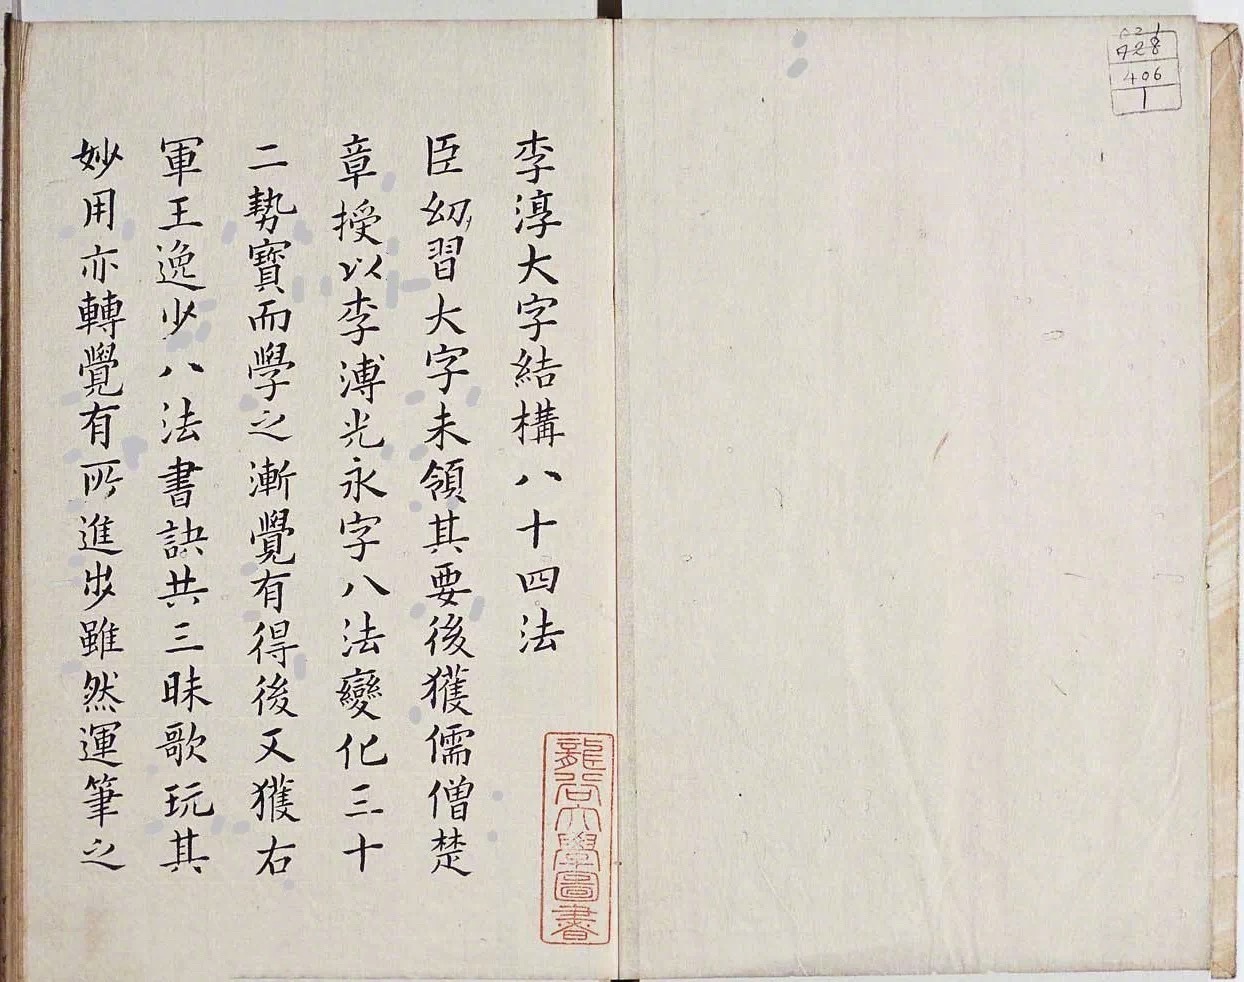 李淳大字結構八十四法
臣幼習大字未領其要後獲儒僧楚
章授以李溥光永字八法變化三十
二勢寶而學之漸覺有得後又獲右
軍王逸少八法書訣共三昧歌玩其
妙用亦轉覺有所進步雖然運筆之
龍谷大學圖書
021
928
406
1